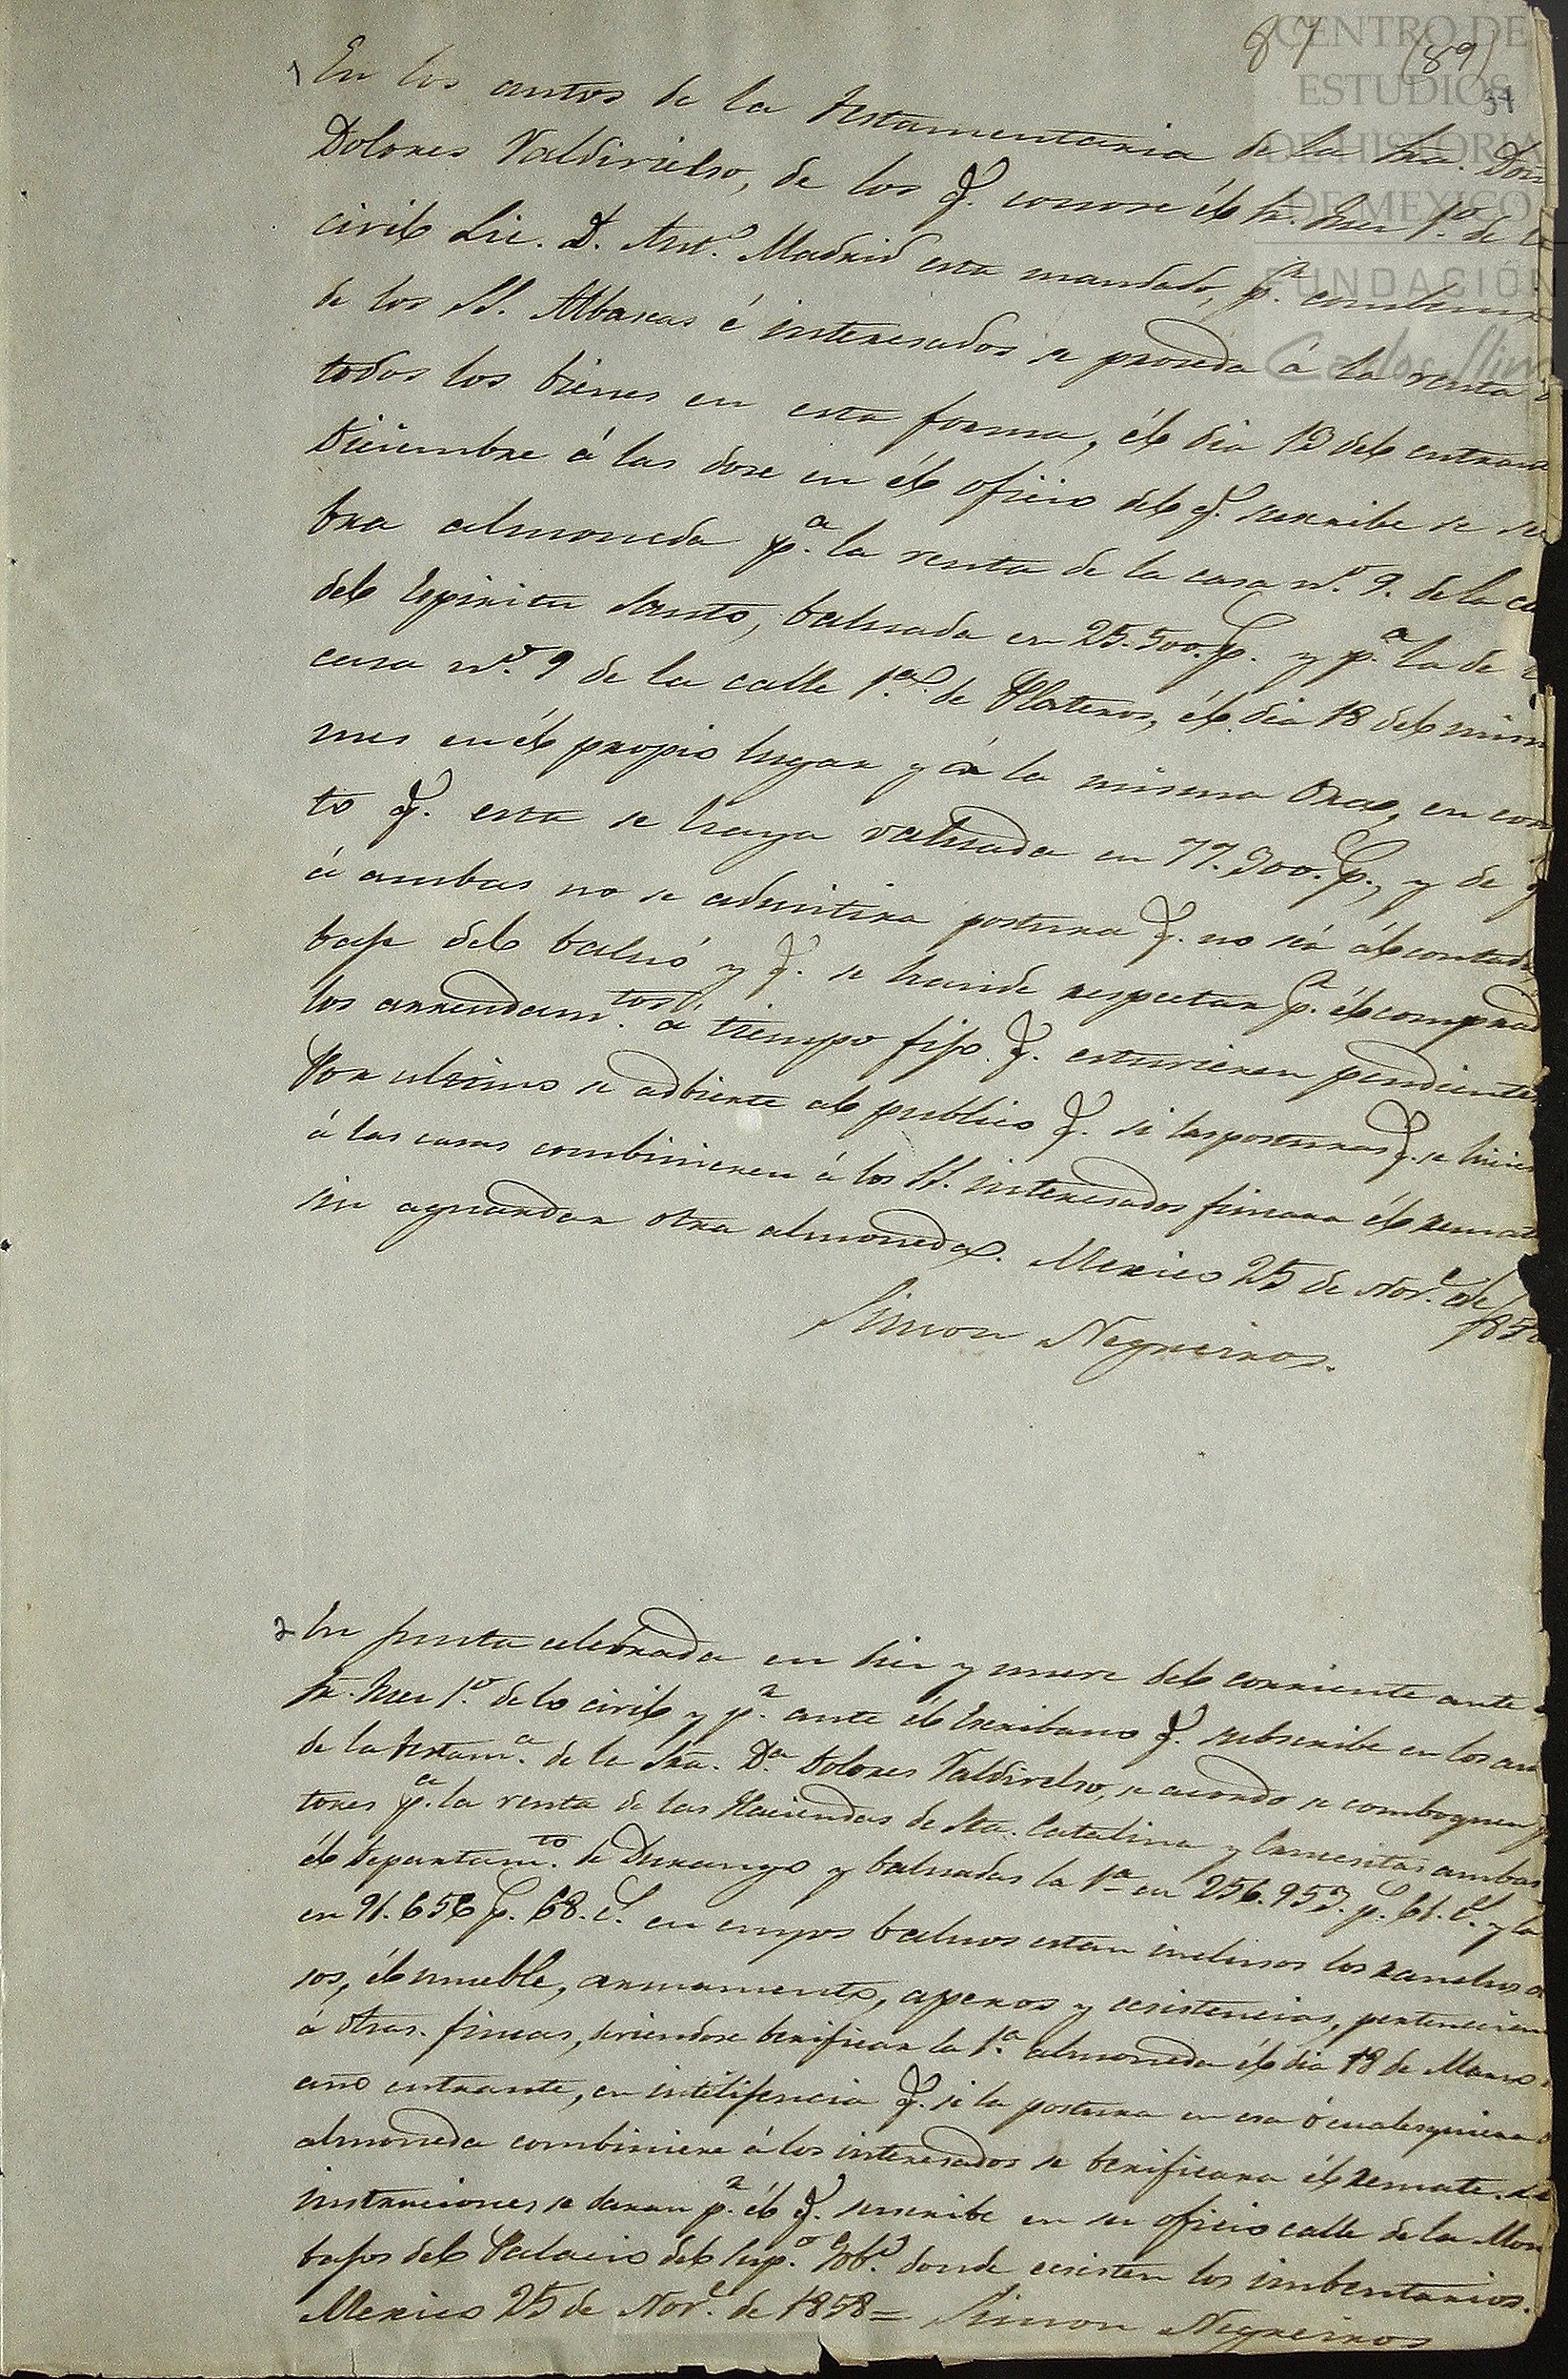 87 (89)
37
CENTRO DE
ESTUDIOS
DE HISTORIA
DE MEXICO
FUNDACIÓN
Carlos Slim
1 En los autos de la testamentaria de la Sra. Doñ
Dolores Valdivielso, de los q. conose él Sr. Jues 1º. de lo
civil Lic. D. Antº. Madrid esta mandado, pr. combenio
de los SS. Albaseas é interesados se proseda á la venta d
todos los bienes en esta forma, él dia 13 del entran
Diciembre á las dose en él oficio del q. suscribe se sele
bra almoneda pa. la venta de la casa nº. 9. de la ca
del Espiritu Santo, balusada en 25.500. p. y pa. la de l
casa nº. 9 de la calle 1ª. de Plateros, él dia 18 del mism
mes en él propio lugar y á la misma Ora, en con
to q. esta se haya valuada en 77.300. p., y de q
á ambas no se admitira postura q. no séa ál contado
bajo del baluó y q. se han de respectar pr. él comprad
los arrendamtos. á tiempo fijo q. estuvieren pendientes
Por ultimo se adbierte al publico q. si las posturas q. se hicies
á las casas combinieren á los SS. interesados fincara él remat
sin aguardar otra almoneda. Mexico 25 de Nove. de 185
Simon Negreiros.
2 En junta celebrada en dies y nueve del corriente ante
Sr. Jues 1º. de lo civil y pr. ante él Escribano q. subscribe en los au
de la testama. de la Sra. Da. Dolores Valdivelso, se acordo se comboquen p
tores pa. la venta de las Haciendas de Sta. Catalina y Cruesitas ambas
él Departamto. de Durango y baluadas la 1ª en 256.953. p. 61. c. y la
en 91.656 p. 68. c. en cuyos baluos estan inclusos los ranchos a
sos, él mueble, armamento, aperos y ecsistencias, pertenecien
á otras fincas, deviendose berificar la 1ª. almoneda él dia 18 de Marso
año entrante, en intelijencia q. si la postura en esa ó cualesquiera
almoneda combiniere á los interesados se berificara él remate. La
instruciones se daran pr. él q. suscribe en su oficio calle de la Mon
bajos del Palacio del Supo. Gobo. donde ecsisten los imbentarios.
Mexico 25 de Nove. de 1858 = Simon Negreiros